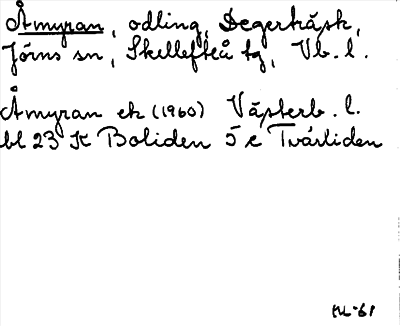 Åmyran, odling, Degerträsk,
Jörns sn, Skellefteå tg, Vb. l.
Åmyran ek (1960) Västerb. l.
bl 23 K Boliden 5 e Tvärliden
HL-61